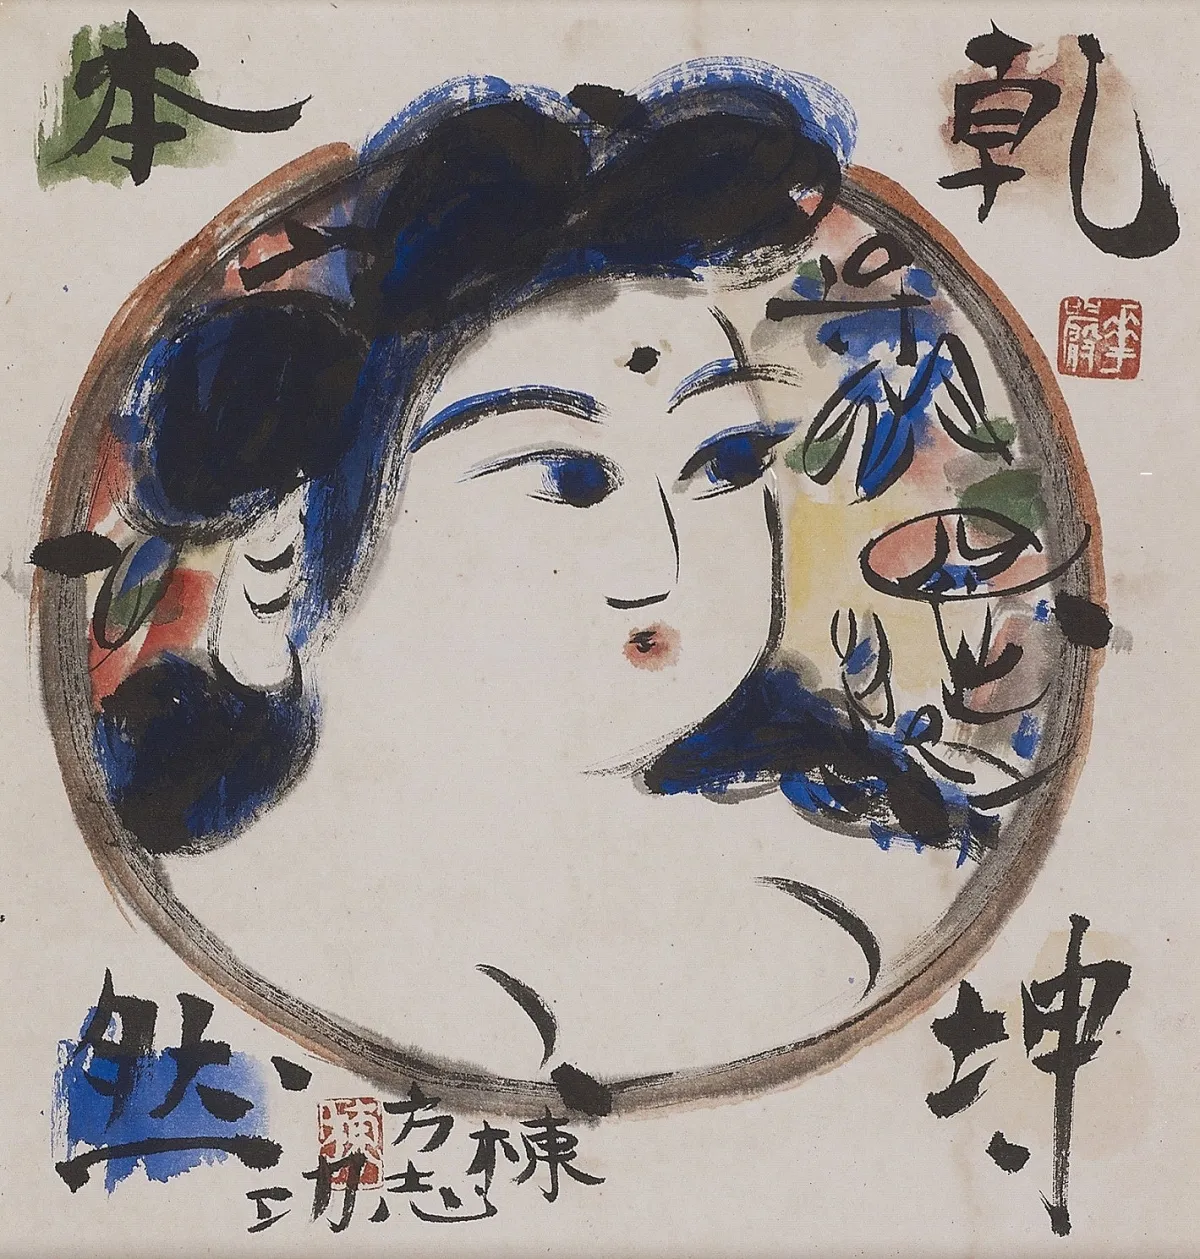 乾
坤
本
然
棟方志功
華嚴